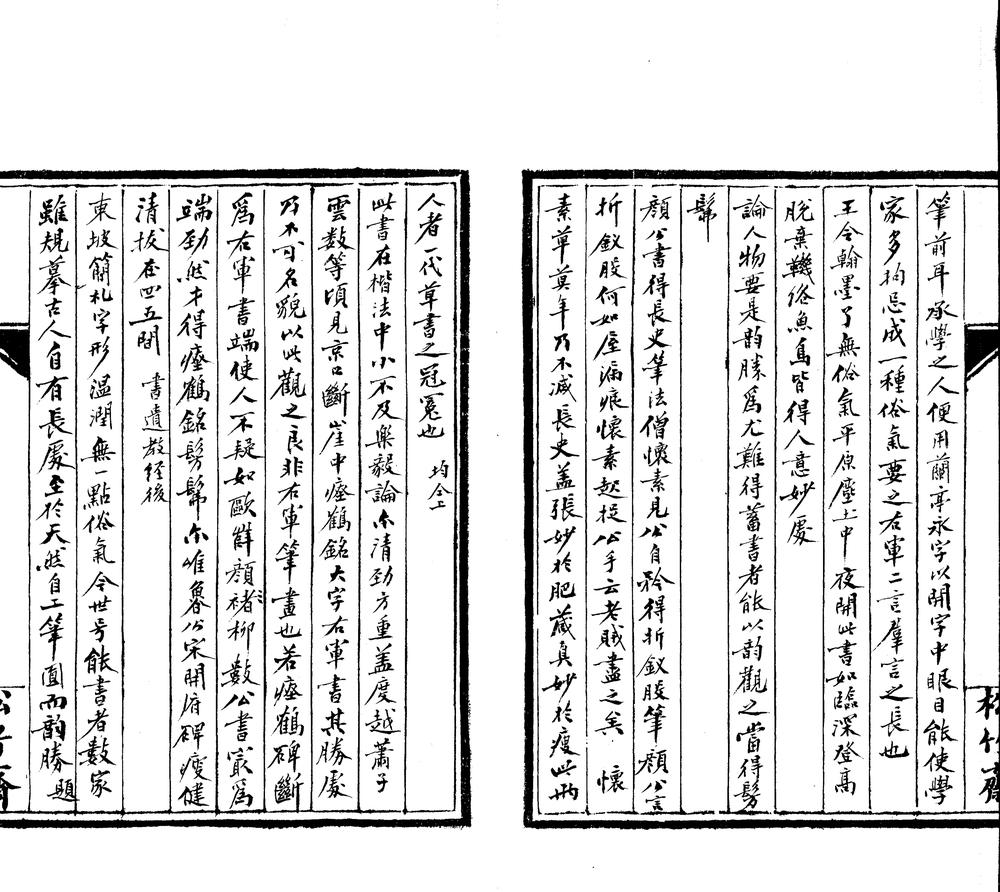 筆前耳承學之人便用蘭亭永字以開字中眼目能使學
家多拘忌成一種俗氣要之右軍二言羣言之長也
王令翰墨了無俗氣平原塵土中 夜開此書如臨深登高
脫棄鞿絡魚鳥皆得人意妙處
論人物要是韵勝爲尤難得蓄書者能以韵觀之當得髣
髴
顔公書得長史筆法僧懷素見公自矜得折釵股筆顔公言
折釵股何如屋漏痕懷素起捉公手云老賊盡之矣 懷
素草莫年乃不减長史盖張妙於肥藏真妙於瘦此兩
人者一代草書之冠冕也 均仝上
此書在楷法中小不及樂毅論尒清勁方重盖度越蕭子
雲数等頃見京口斷崖中瘞鶴銘大字右軍書其勝處
乃不可名貌以此觀之良非右軍筆畫也若瘞鶴碑斷
爲右軍書端使人不疑如歐薛顔褚柳數公書㝡爲
端勁然才得瘞鶴銘髣髴尒唯魯公宋開府碑瘦健
清拔在四五間 書遺教經後
東坡簡札字形温潤無一點俗氣今世号能書者數家
雖規摹古人自有長處至於天然自工筆圓而韵勝 題